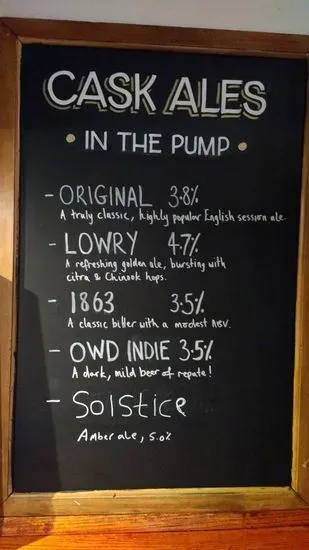 CASK ALES
• IN THE PUMP •
- ORIGINAL 3.8%
A truly classic, highly popular English session ale.
- LOWRY 4.7%
A refreshing golden ale, bursting with
citra & Chinook hops.
- 1863 3.5%
A classic bitter with a modest ABV.
- OWD INDIE 3.5%
A dark, mild beer of repute!
- Solstice
Amber ale, 5.0%